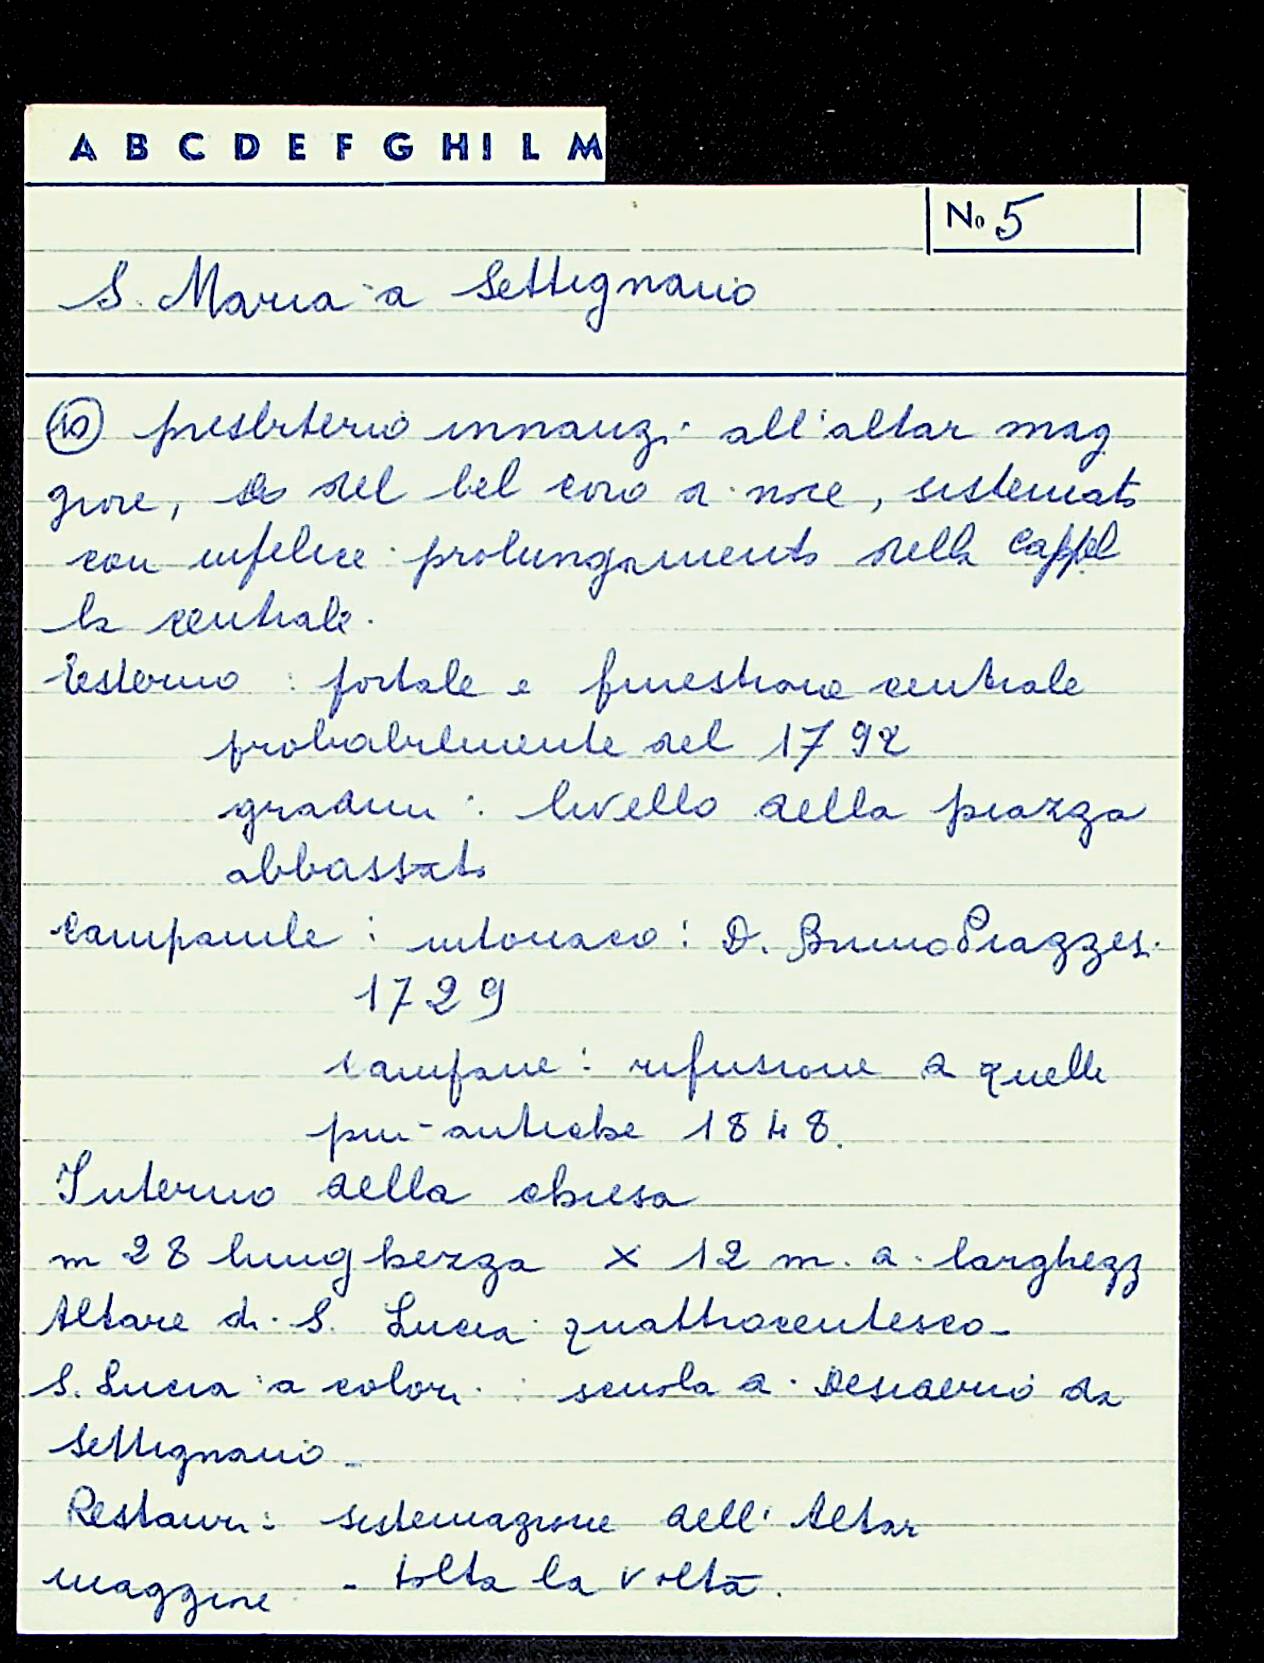 A B C D E F G H I L M
No 5
S. Maria a Settignano
10 presbiterio innanzi all'altar mag
giore, e del bel coro di noce, sistemato
con infelice prolungamento della cappel
la centrale.
Esterno : portale e finestrone centrale
probabilmente del 1792
gradini : livello della piazza
abbassato
Campanile : intonaco : D. Bruno Piazzesi
1729
campane : rifusione di quelle
più antiche 1848.
Interno della chiesa
m 28 lunghezza x 12 m. di larghezz
Altare di S. Lucia quattrocentesco -
S. Lucia a colori : scuola di Desiderio da
Settignano -
Restauri : sistemazione dell'Altar
maggiore - tolta la volta.